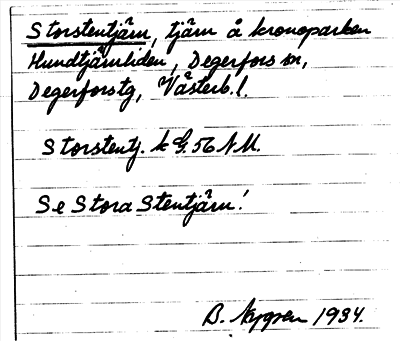 Storstentjärn, tjärn å kronoparken
Hundtjärnliden, Degerfors sn,
Degerforstg, Västerb.l.
Storstentj. k G.56 N.M.
Se Stora Stentjärn!
B. Nygren 1934.